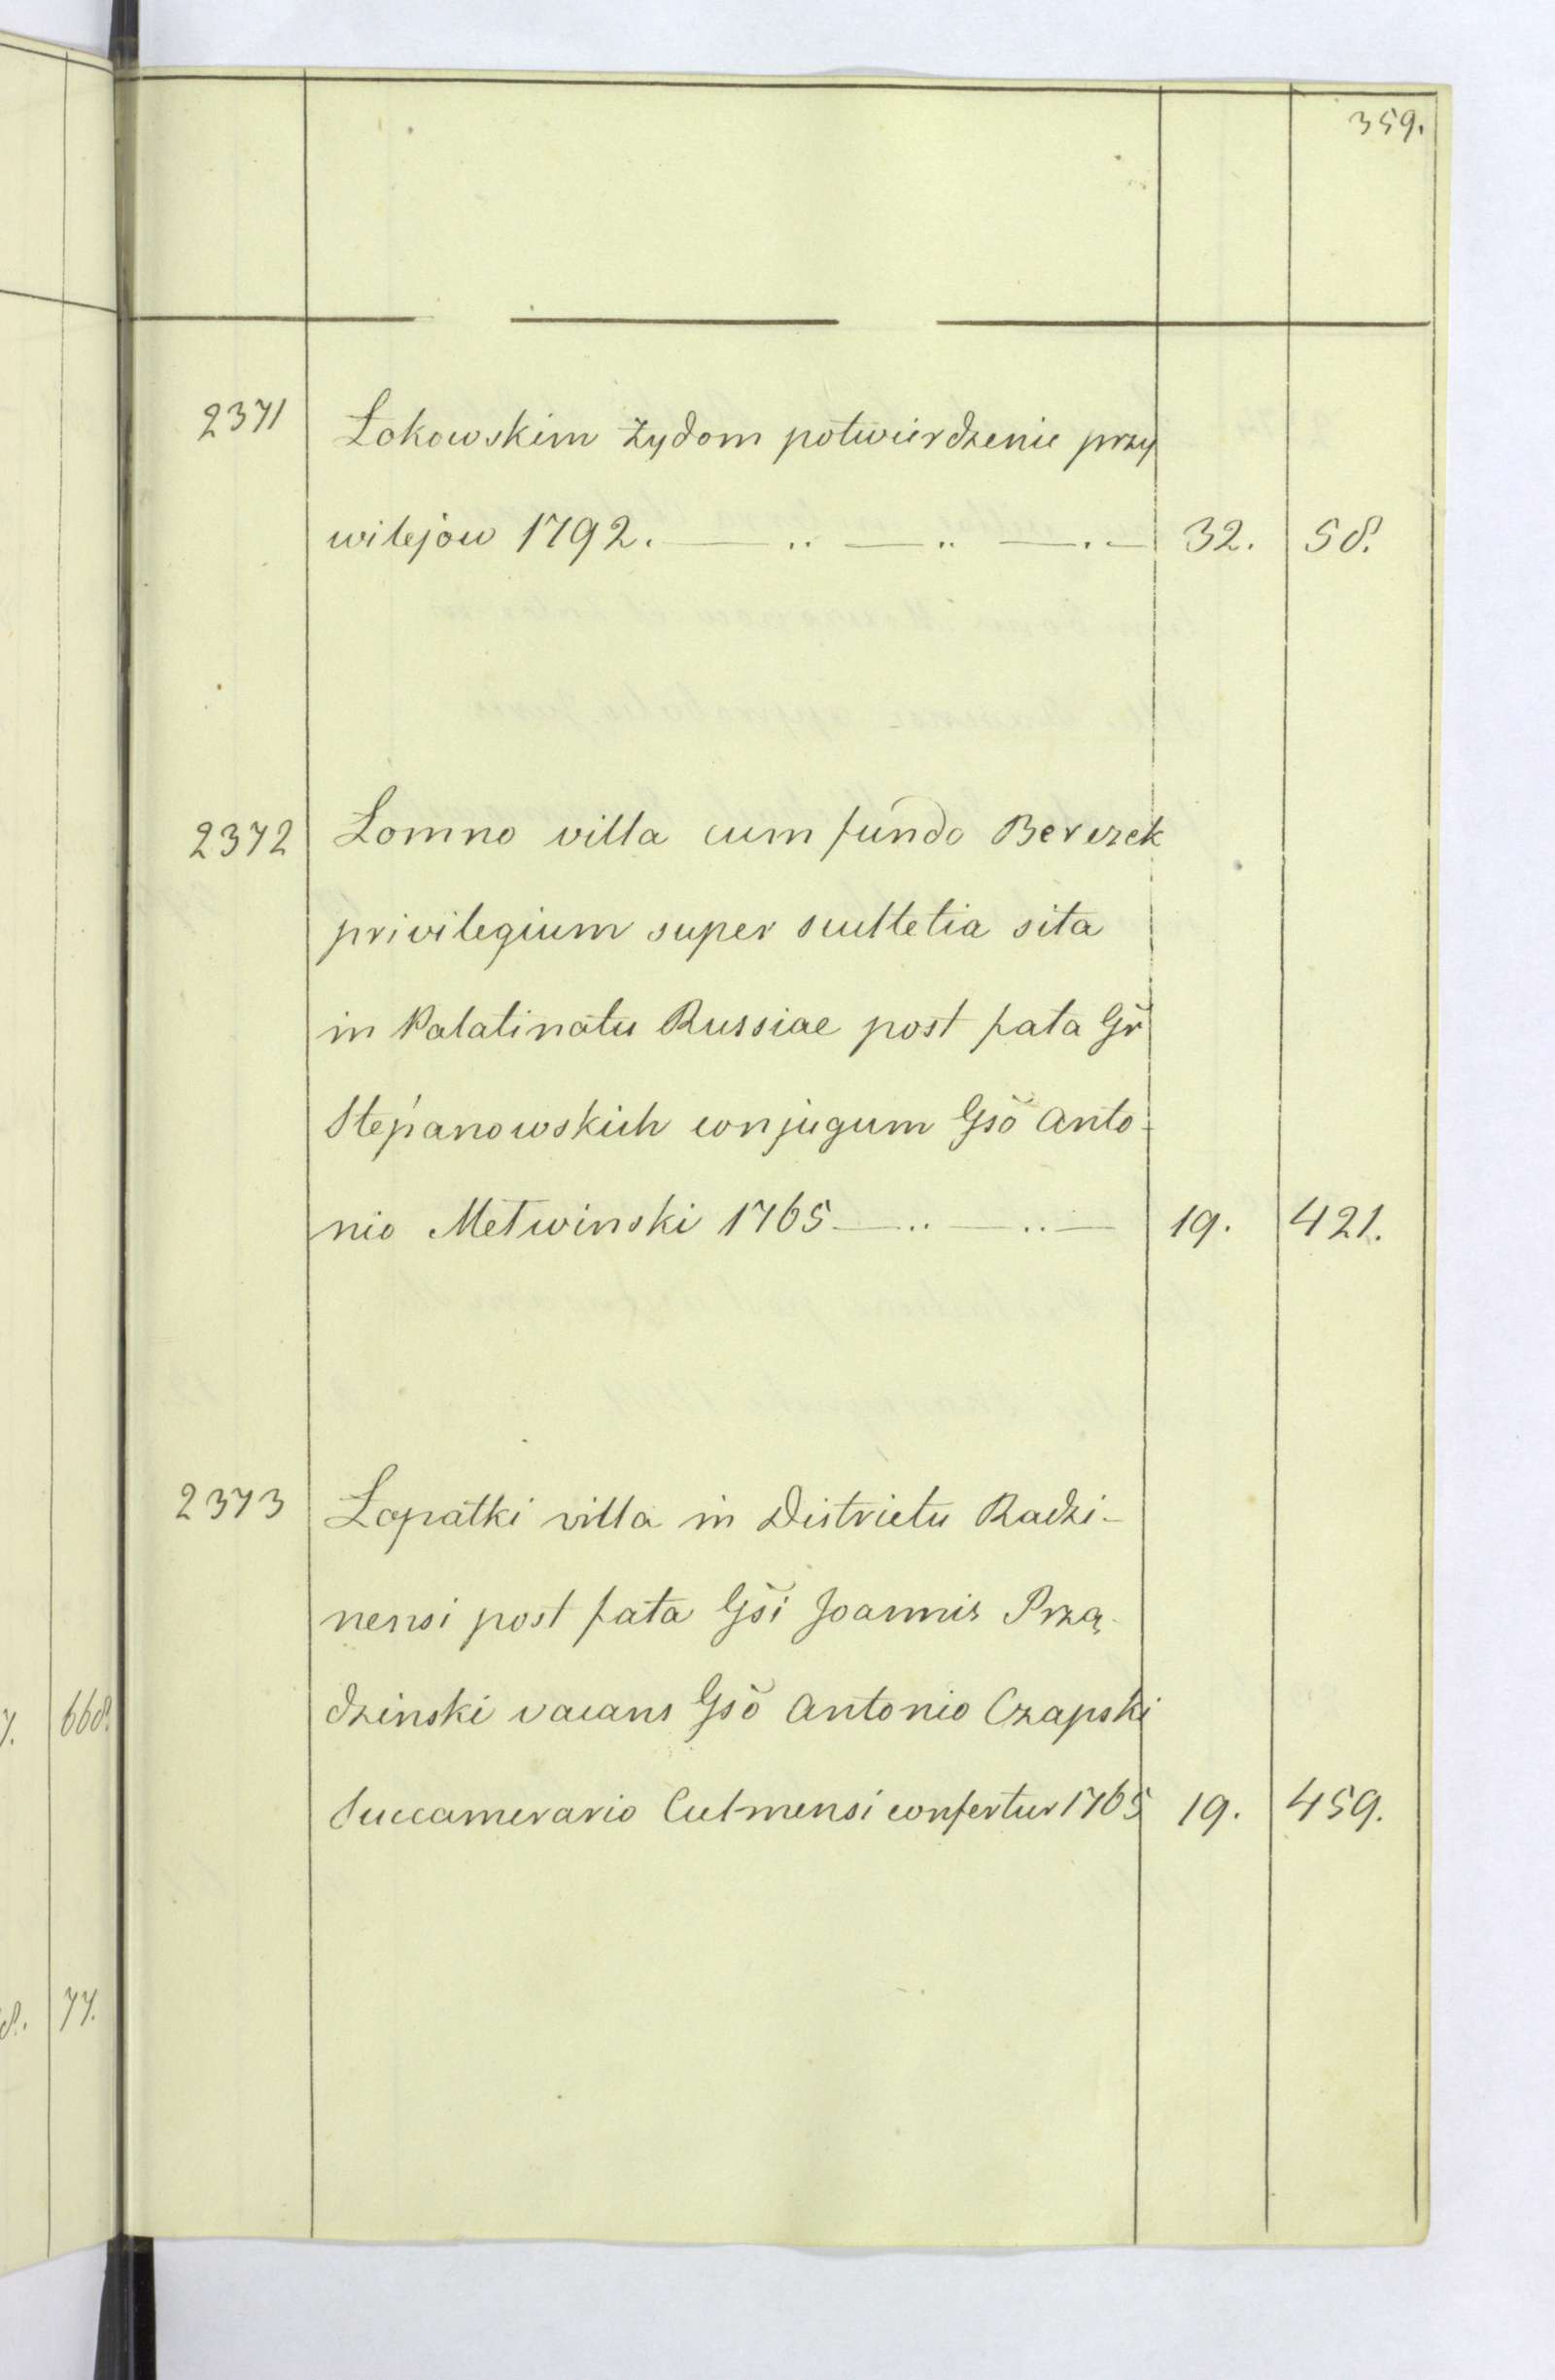 359.
2371 Łokowskim Żydom potwierdzenie przy
wilejow 1792. 32. 58.
2372 Łomno villa cum fundo Berezek
privilegium super scultetia sita
in Palatinatu Russiae post fata Gr̃
Stepanowskich conjugum Gsõ Anto-
nio Metwinski 1765 19. 421.
2373 Łopatki villa in Districtu Radzi-
nensi post fata Gsi̇̃ Joannis Przą-
dzinski vacans Gsõ Antonio Czapski
Succamerario Culmensi confertur 1765 19. 459.
668.
77.